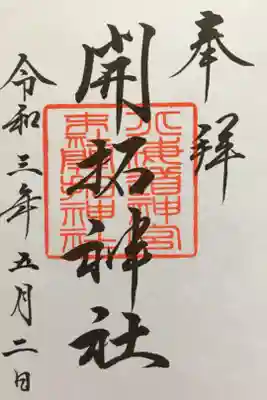 奉拝
開拓神社
北海道神宮
末開拓神社
令和三年五月二日